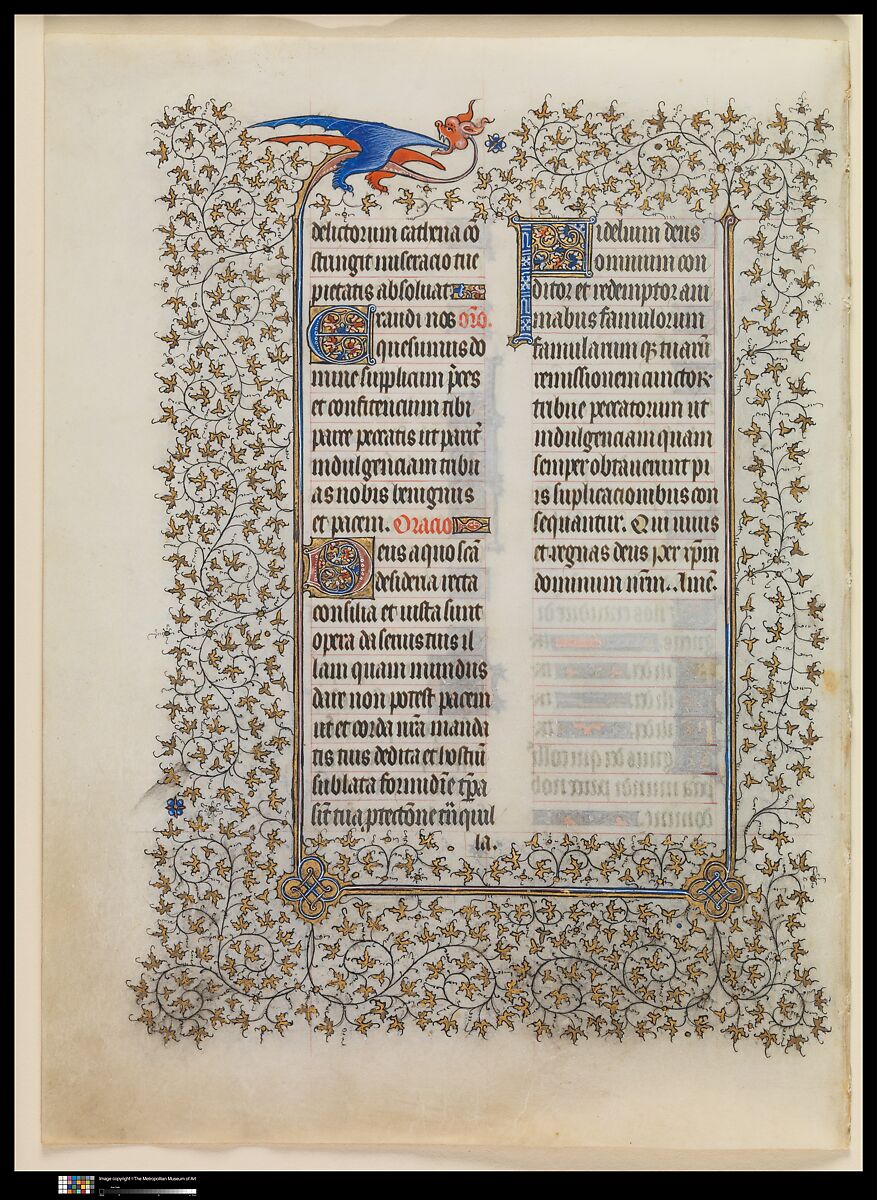 delictorum cathena cō
stringit miseracio tue
pietatis absoluat
Exaudi nos or̄o.
quesumus do
mine supplicum p̄ces
et confitencium tibi
parce peccatis ut parit̄
indulgenciam tribu
as nobis benignus
et pacem. Oracio
Deus a quo sc̄a
desideria recta
consilia et iusta sunt
opera da seruis tuis il
lam quam mundus
dare non potest pacem
ut et corda nr̄a manda
tis tuis dedita et hostiū
sublata formidīe tp̄a
sīt tua ꝓtectōne tr̄quil
la.
Fidelium deus
omnium con
ditor et redemptor ani
mabus famulorum
famularum qꝫ tuarū
remissionem cunctoꝝ
tribue peccatorum ut
indulgenciam quam
semper obtauerunt pi
is suplicacionibus con
sequantur. Qui uiuis
et regnas deus per xp̄m
dominum nr̄m. Amē.
Image copyright ©The Metropolitan Museum of Art